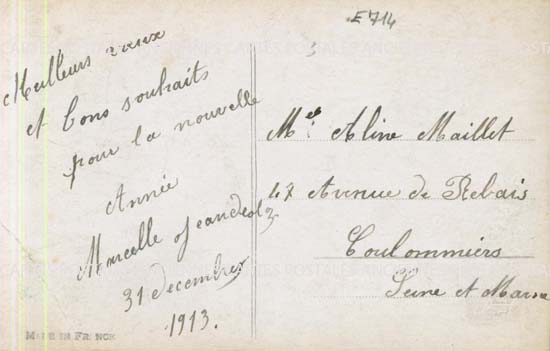 E 714
Meilleurs vœux
et bons souhaits
pour la nouvelle
Année
Marcelle
31 decembre
1913.
Melle Aline Maillet
47 Avenue de Rebais
Coulommiers
Seine et Marne
MADE IN FRANCE